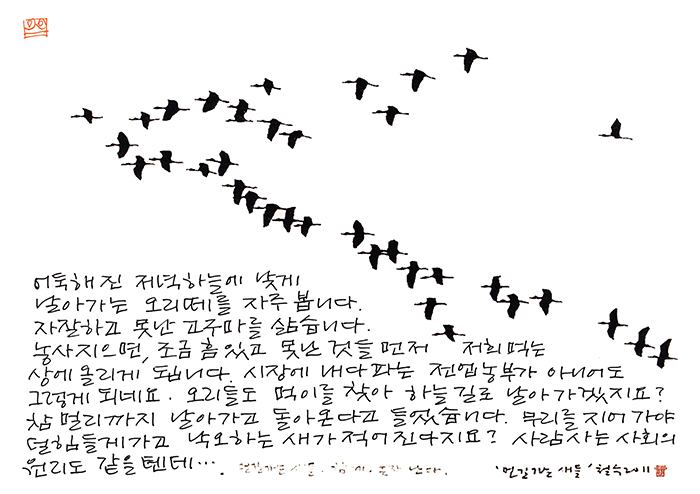 어둑해진 저녁하늘에 낮게
날아가는 오리떼를 자주 봅니다.
자잘하고 못난 고구마를 삶습니다.
농사지으면, 조금 흠있고 못난 것들 먼저 저희 먹는
상에 올리게 됩니다. 시장에 내다 파는 전업농부가 아니어도
그렇게 되네요. 오리들도 먹이를 찾아 하늘길로 날아가겠지요?
참 멀리까지 날아가고 돌아온다고 들었습니다. 무리를 지어 가야
덜 힘들게 가고 낙오하는 새가 적어진다지요? 사람 사는 사회의
원리도 같을 텐데···.
'먼길 가는 새들' 철수 2011